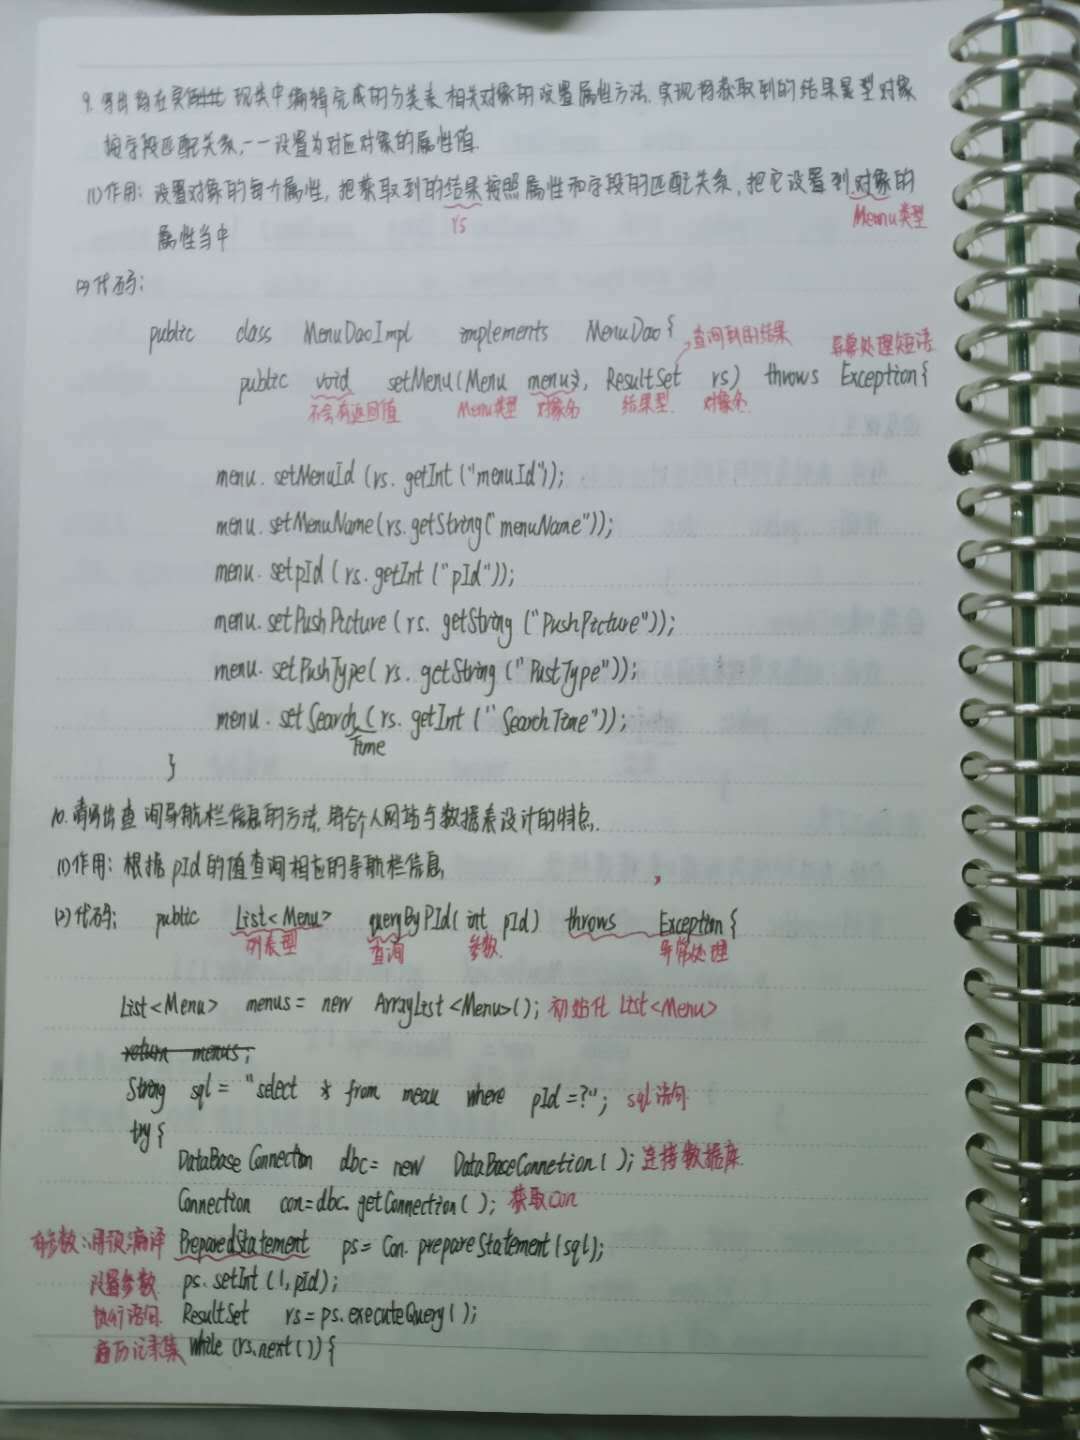 9. 写出你在实现类中编辑完成的分类表相关对象的设置属性方法,实现将获取到的结果集型对象
按字段匹配关系,一一设置为对应对象的属性值.
(1)作用: 设置对象的每个属性, 把获取到的结果按照属性和字段的匹配关系, 把它设置到对象的
rs Menu类型
属性当中
(2)代码:
public class MenuDaoImpl implements MenuDao{
查询到的结果 异常处理短语
public void setMenu(Menu menu, ResultSet rs) throws Exception{
不会有返回值 Menu类型 对象名 结果型 对象名
menu. setMenuId (rs. getInt ("menuId"));
menu. setMenuName(rs. getString("menuName"));
menu. setpId (rs. getInt ("pId"));
menu. setPushPicture (rs. getString ("PushPicture"));
menu. setPushType( rs. getString ("PustType"));
menu. setSearch (rs. getInt ("SearchTime"));
Time
}
10. 请写出查询导航栏信息的方法, 结合个人网站与数据表设计的特点.
(1)作用: 根据 pId 的值查询相应的导航栏信息
(2)代码: public List<Menu> queryByPId( int pId) throws Exception{
列表型 查询 参数 异常处理
List<Menu> menus = new ArrayList<Menu>(); 初始化 List<Menu>
return menus;
String sql = "select * from meau where pId =?"; sql语句
try {
DataBaseConnection dbc= new DataBaseConnetion( ); 连接数据库
Connection con=dbc. getConnection( ); 获取con
有参数:用预编译 PreparedStatement ps= Con. prepareStatement(sql);
设置参数 ps. setInt (1, pId);
执行语句 ResultSet rs = ps. executeQuery( );
遍历记录集 while (rs.next( )) {